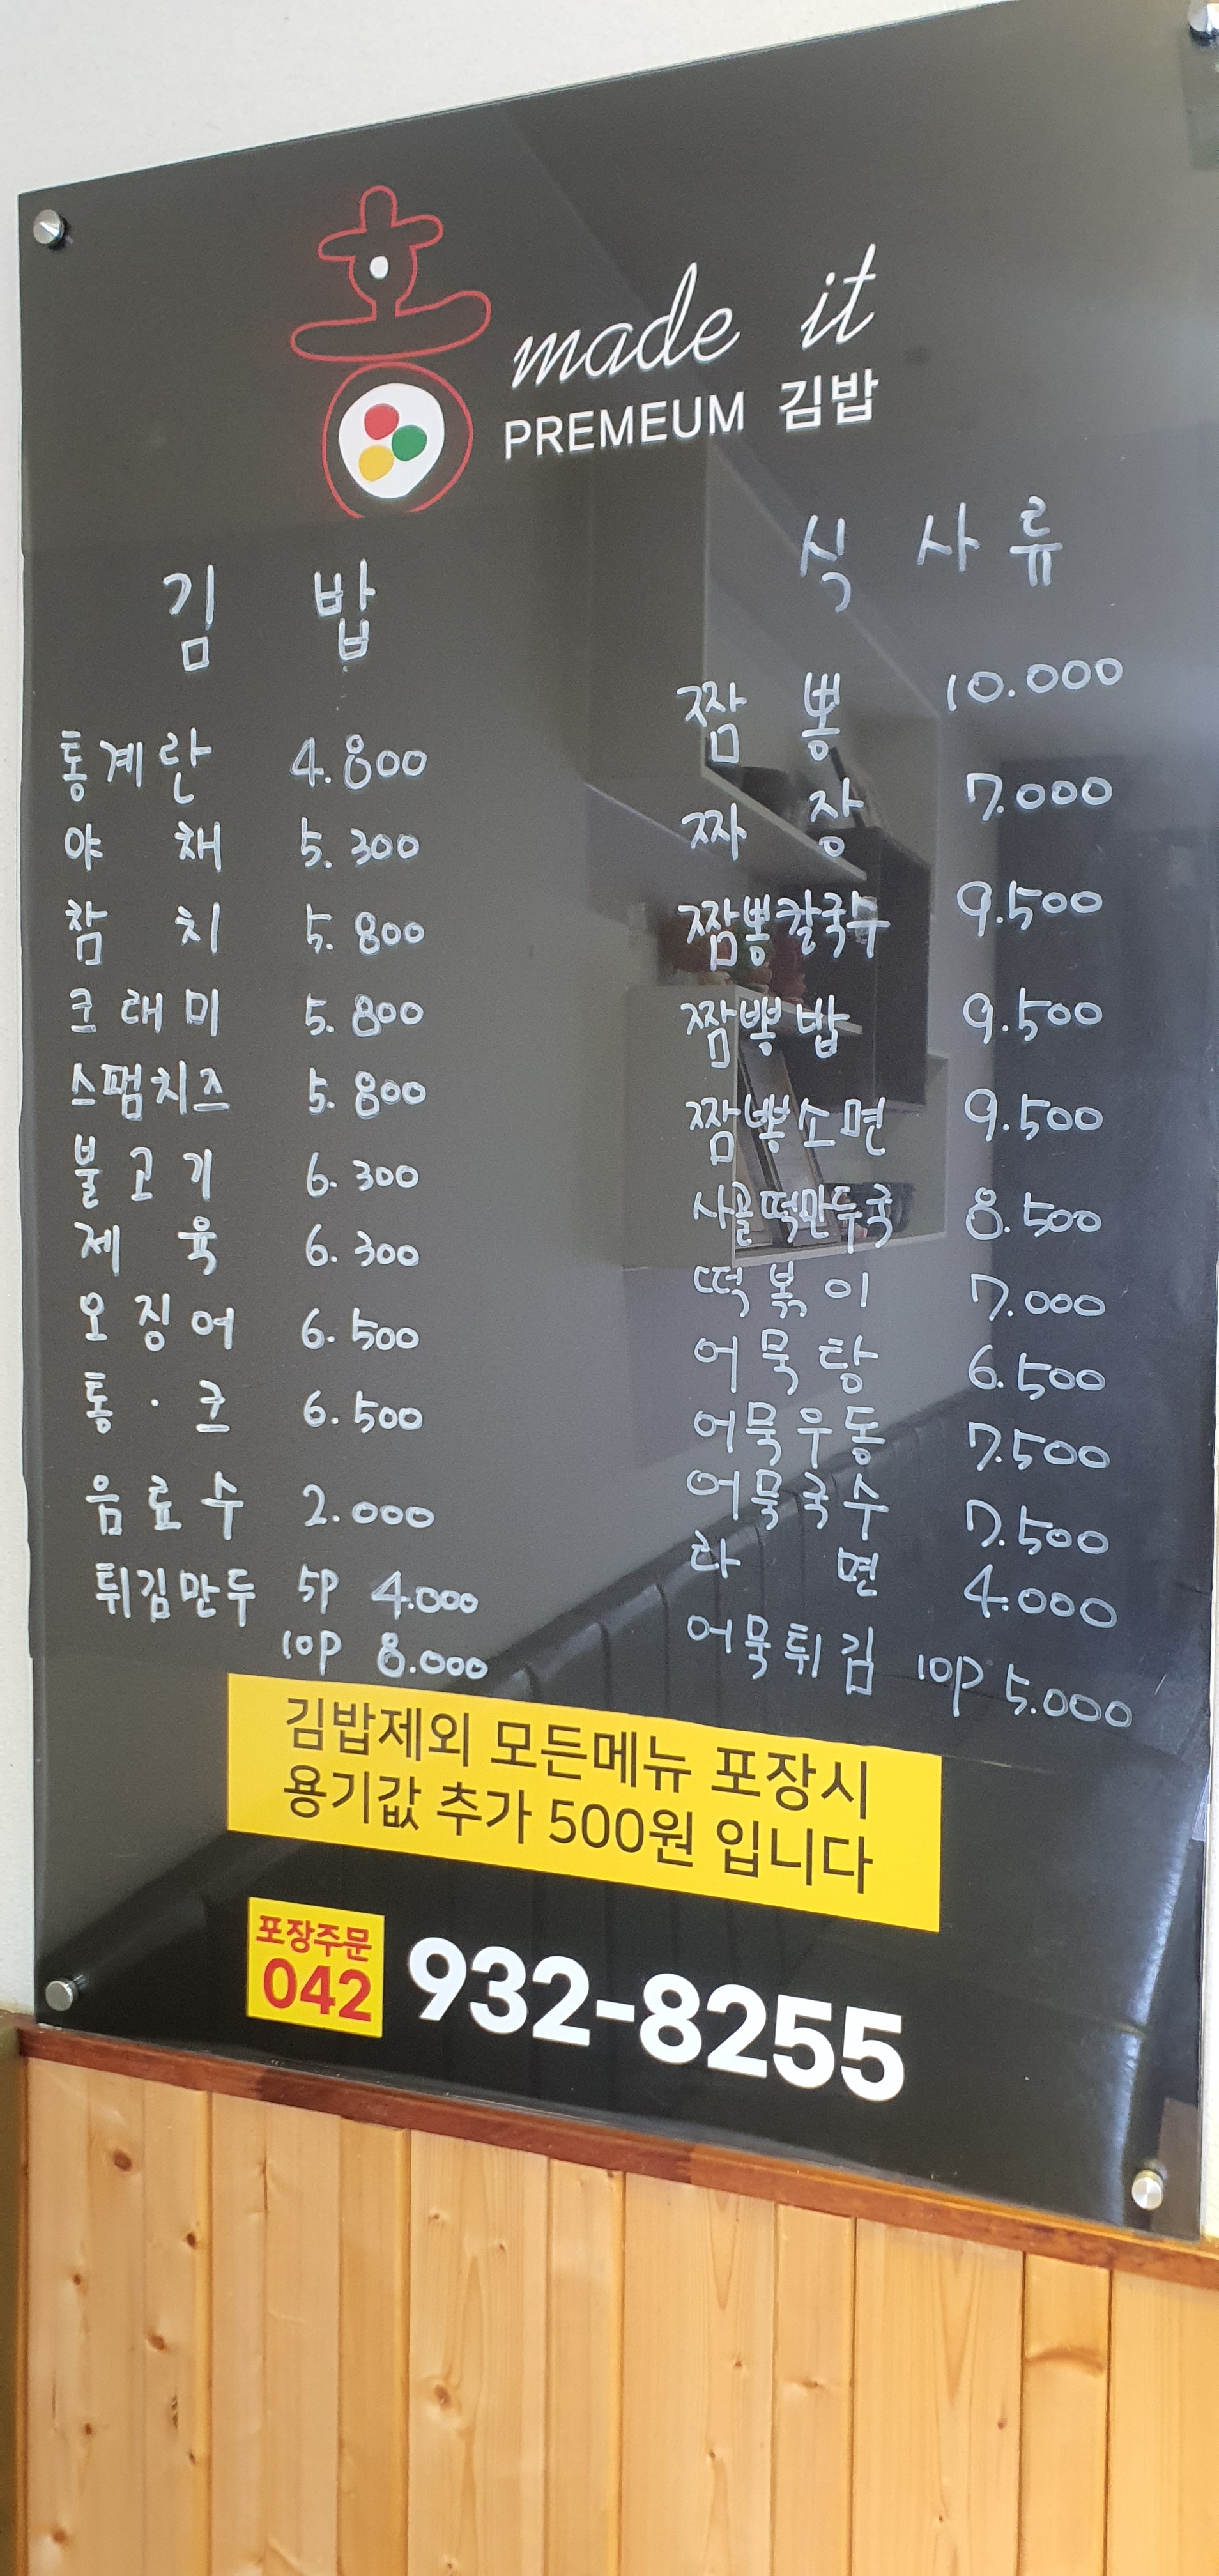 훔
made it
PREMEUM 김밥
김 밥
통계란 4.800
야 채 5.300
참 치 5.800
크래미 5.800
스팸치즈 5.800
불고기 6.300
제 육 6.300
오징어 6.500
통·크 6.500
음료수 2.000
튀김만두 5P 4.000
10P 8.000
식 사 류
짬 뽕 10.000
짜 장 7.000
짬뽕칼국수 9.500
짬뽕밥 9.500
짬뽕소면 9.500
사골떡만두국 8.500
떡볶이 7.000
어묵탕 6.500
어묵우동 7.500
어묵국수 7.500
라 면 4.000
어묵튀김 10P 5.000
김밥제외 모든메뉴 포장시
용기값 추가 500원 입니다
포장주문
042 932-8255